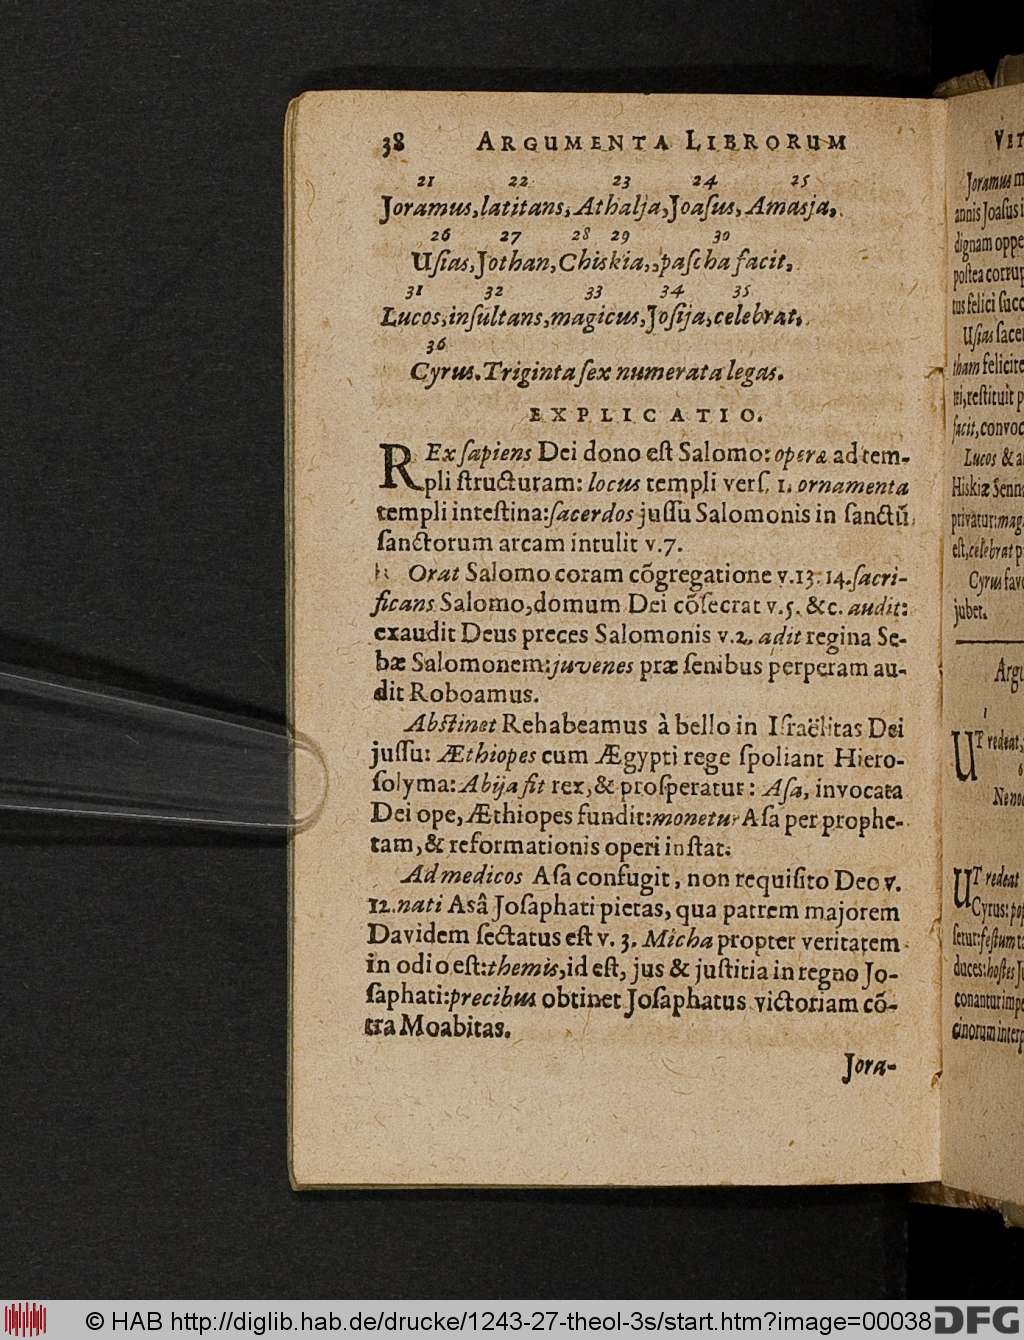 38 ARGUMENTA LIBRORUM
21 22 23 24 25
Joramus, latitans, Athalja, Joaſus, Amasja,
26 27 28 29 30
Uſias, Jothan, Chiskia, paſcha facit,
31 32 33 34 35
Lucos, inſultans, magicus, Joſija, celebrat,
36
Cyrus. Triginta ſex numerata legas.
EXPLICATIO.
REx ſapiens Dei dono eſt Salomo: operæ ad tem-
pli ſtructuram: locus templi verſ. 1. ornamenta
templi inteſtina: ſacerdos juſſu Salomonis in ſanctū
ſanctorum arcam intulit v.7.
Orat Salomo coram cōgregatione v.13. 14. ſacri-
ficans Salomo, domum Dei cōſecrat v.5. &c. audit:
exaudit Deus preces Salomonis v.2. adit regina Se-
bæ Salomonem: juvenes præ ſenibus perperam au-
dit Roboamus.
Abſtinet Rehabeamus à bello in Iſraëlitas Dei
juſſu: Æthiopes cum Ægypti rege ſpoliant Hiero-
ſolyma: Abija fit rex, & proſperatur: Aſa, invocata
Dei ope, Æthiopes fundit: monetur Aſa per prophe-
tam, & reformationis operi inſtat.
Ad medicos Aſa confugit, non requiſito Deo v.
12. nati Asâ Joſaphati pietas, qua patrem majorem
Davidem ſectatus eſt v. 3. Micha propter veritatem
in odio eſt: themis, id eſt, jus & juſtitia in regno Jo-
ſaphati: precibus obtinet Joſaphatus victoriam cō-
tra Moabitas.
Jora-
VET
Joramus m
annis Joaſus i
dignam oppe
poſtea corrup
tus felici ſucc
Uſias ſacer
tham felicite
reſtituit p
facit, convoc
Lucos & a
Hiskiæ Senna
privatur: mag
eſt, celebrat p
Cyrus favo
jubet.
Argu
1
UT redeat,
UT redeat
Cyrus: pop
ſetur: feſtum ta
duces: hoſtes Ju
conantur impe
cinorum interp
© HAB http://diglib.hab.de/drucke/1243-27-theol-3s/start.htm?image=00038
DFG